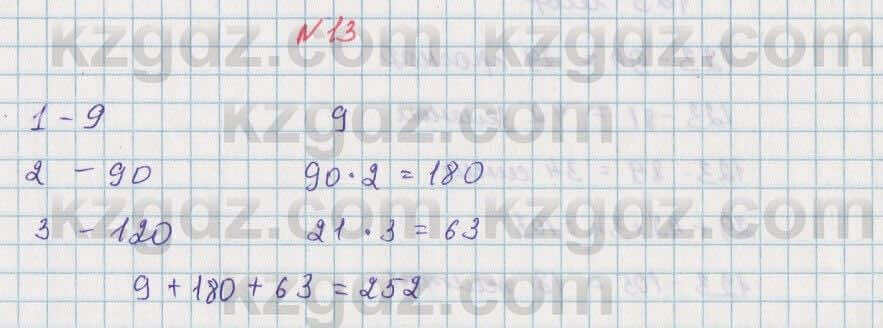 №13
1 - 9 9
2 - 90 90 · 2 = 180
3 - 120 21 · 3 = 63
9 + 180 + 63 = 252
kzgdz.com
kzgdz.com
kzgdz.com
kzgdz.com